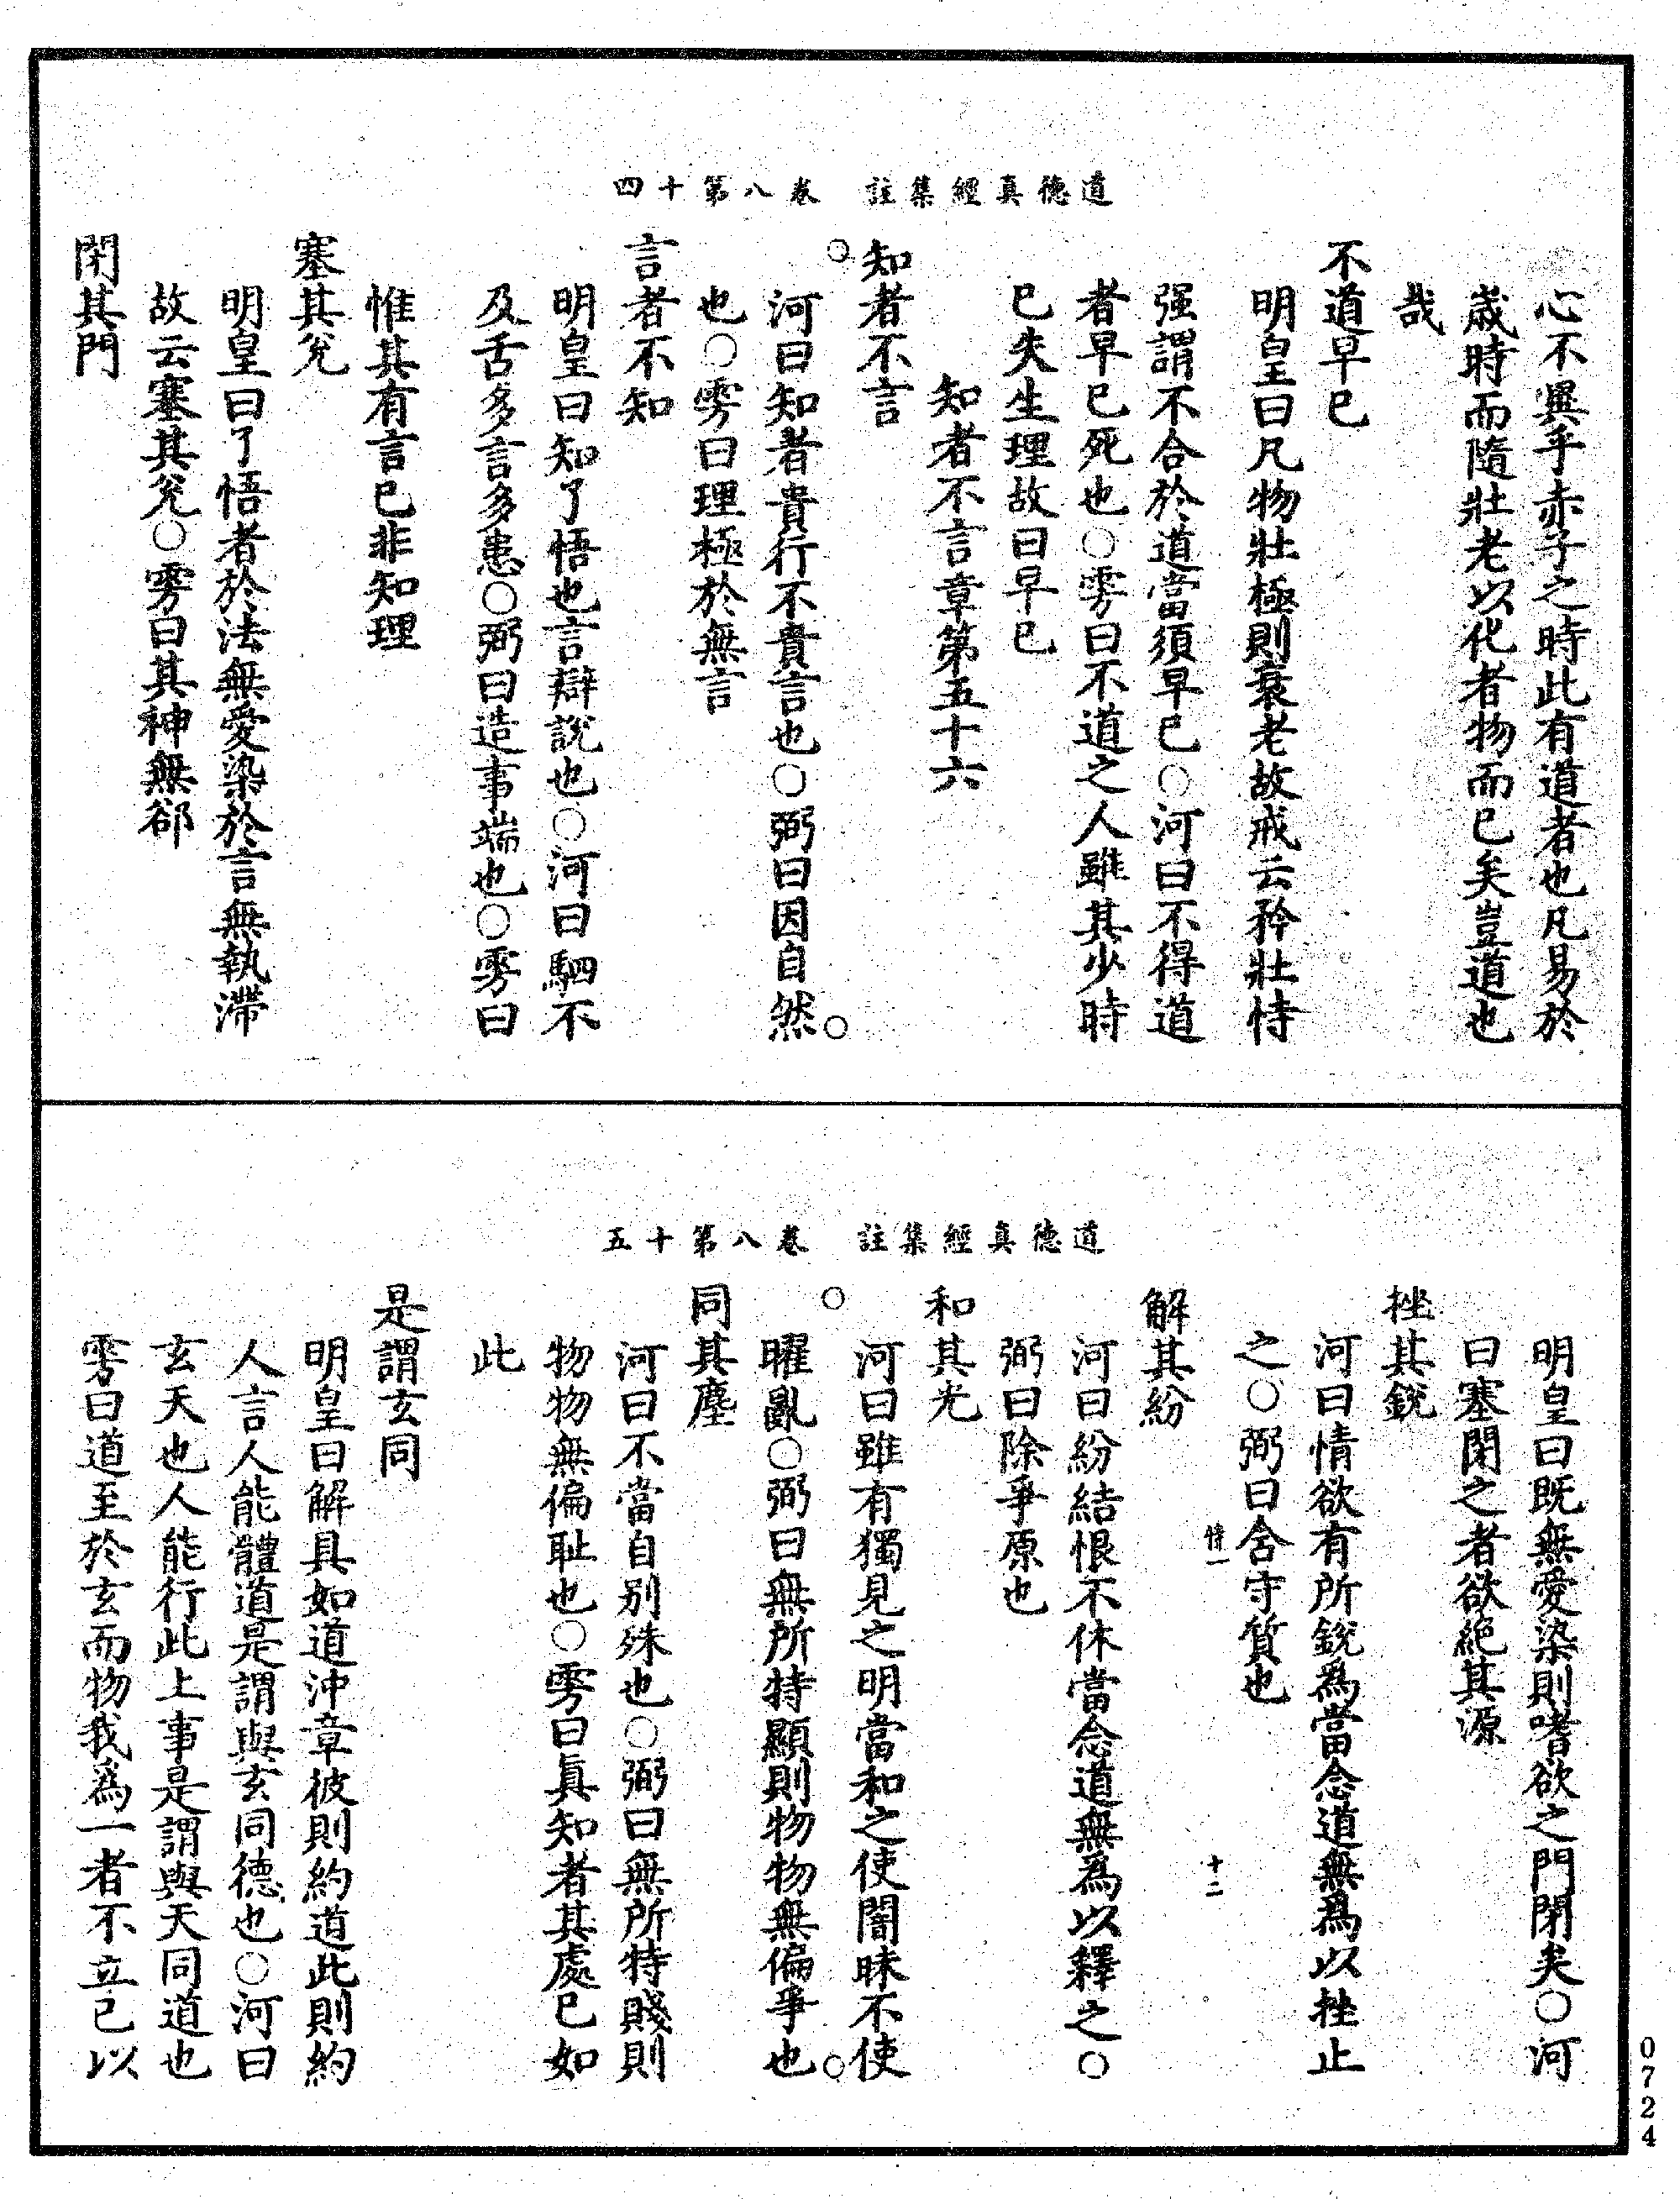 道德真經集註　卷八第十四
心不興乎赤子之時此有道者也凡易於
歲時而隨壯老以化者物而已矣豈道也
哉
不道早已
明皇曰凡物壯極則衰老故戒云矜壯恃
强謂不合於道當須早已○河曰不得道
者早已死也○雱曰不道之人雖其少時
已失生理故曰早已
知者不言章第五十六
知者不言
河曰知者貴行不貴言也○弼曰因自然
也○雱曰理極於無言
言者不知
明皇曰知了悟也言辯說也○河曰駟不
及舌多言多患○弼曰造事端也○雱曰
惟其有言已非知理
塞其兌
明皇曰了悟者於法無愛染於言無執滯
故云塞其兌○雱曰其神無郤
閉其門
道德真經集註　卷八第十五
明皇曰既無愛染則嗜欲之門閉矣○河
曰塞閉之者欲絕其源
挫其銳
河曰情欲有所銳爲當念道無爲以挫止
之○弼曰含守質也
恃一　十二
解其紛
河曰紛結恨不休當念道無爲以釋之○
弼曰除爭原也
和其光
河曰雖有獨見之明當和之使闇昧不使
曜亂○弼曰無所特顯則物物無偏爭也
同其塵
河曰不當自别殊也○弼曰無所特賤則
物物無偏耻也○雱曰真知者其處已如
此
是謂玄同
明皇曰解具如道沖章彼則約道此則約
人言人能體道是謂與玄同德也○河曰
玄天也人能行此上事是謂與天同道也
雱曰道至於玄而物我爲一者不立已以
0724